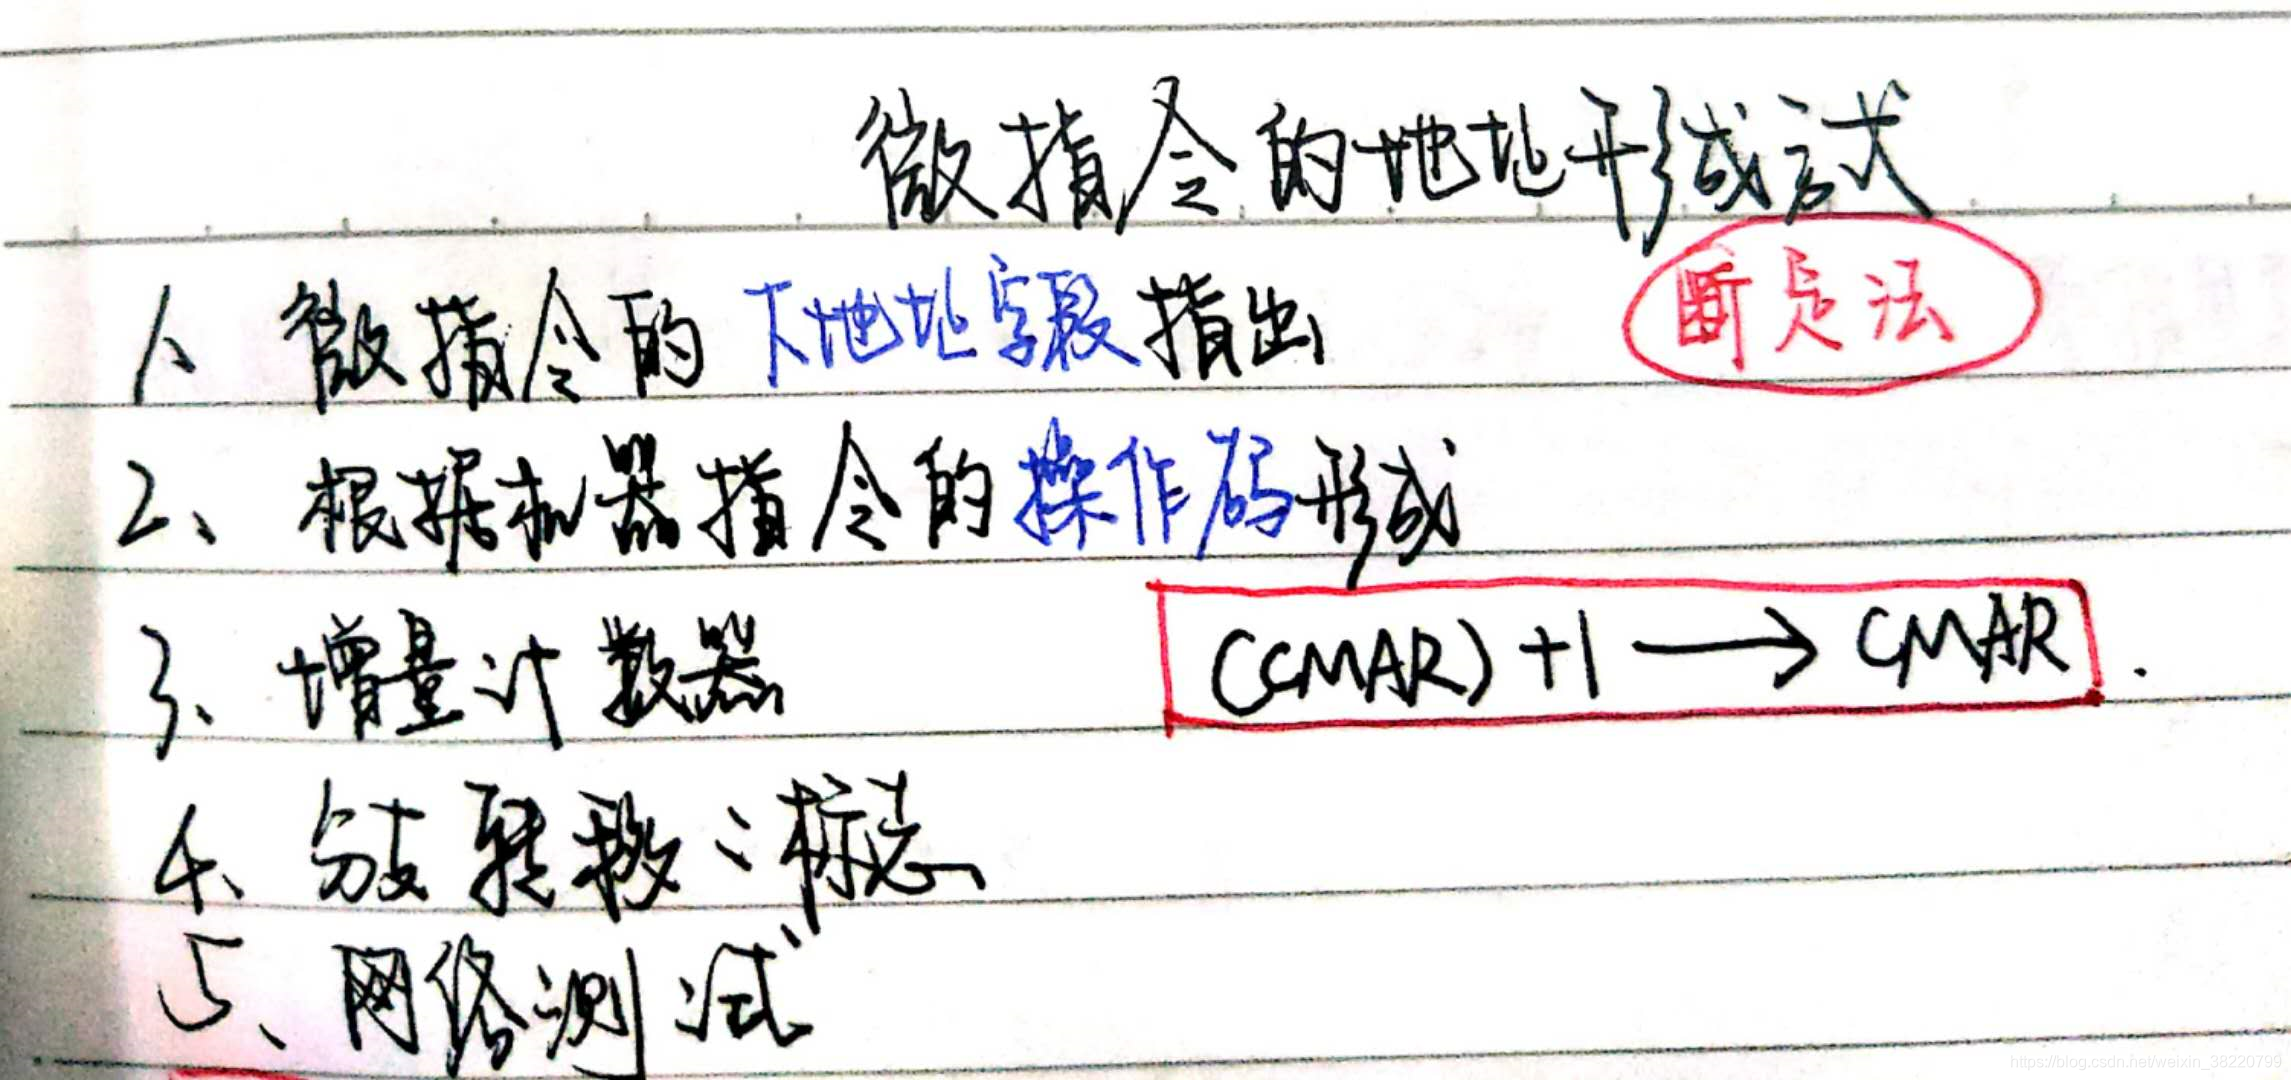 微指令的地址形成方式
1、微指令的下地址字段指出 断定法
2、根据机器指令的操作码形成
3、增量计数器 (CMAR)+1→CMAR.
4、分支转移：标志
5、网络测试
https://blog.csdn.net/weixin_38220799